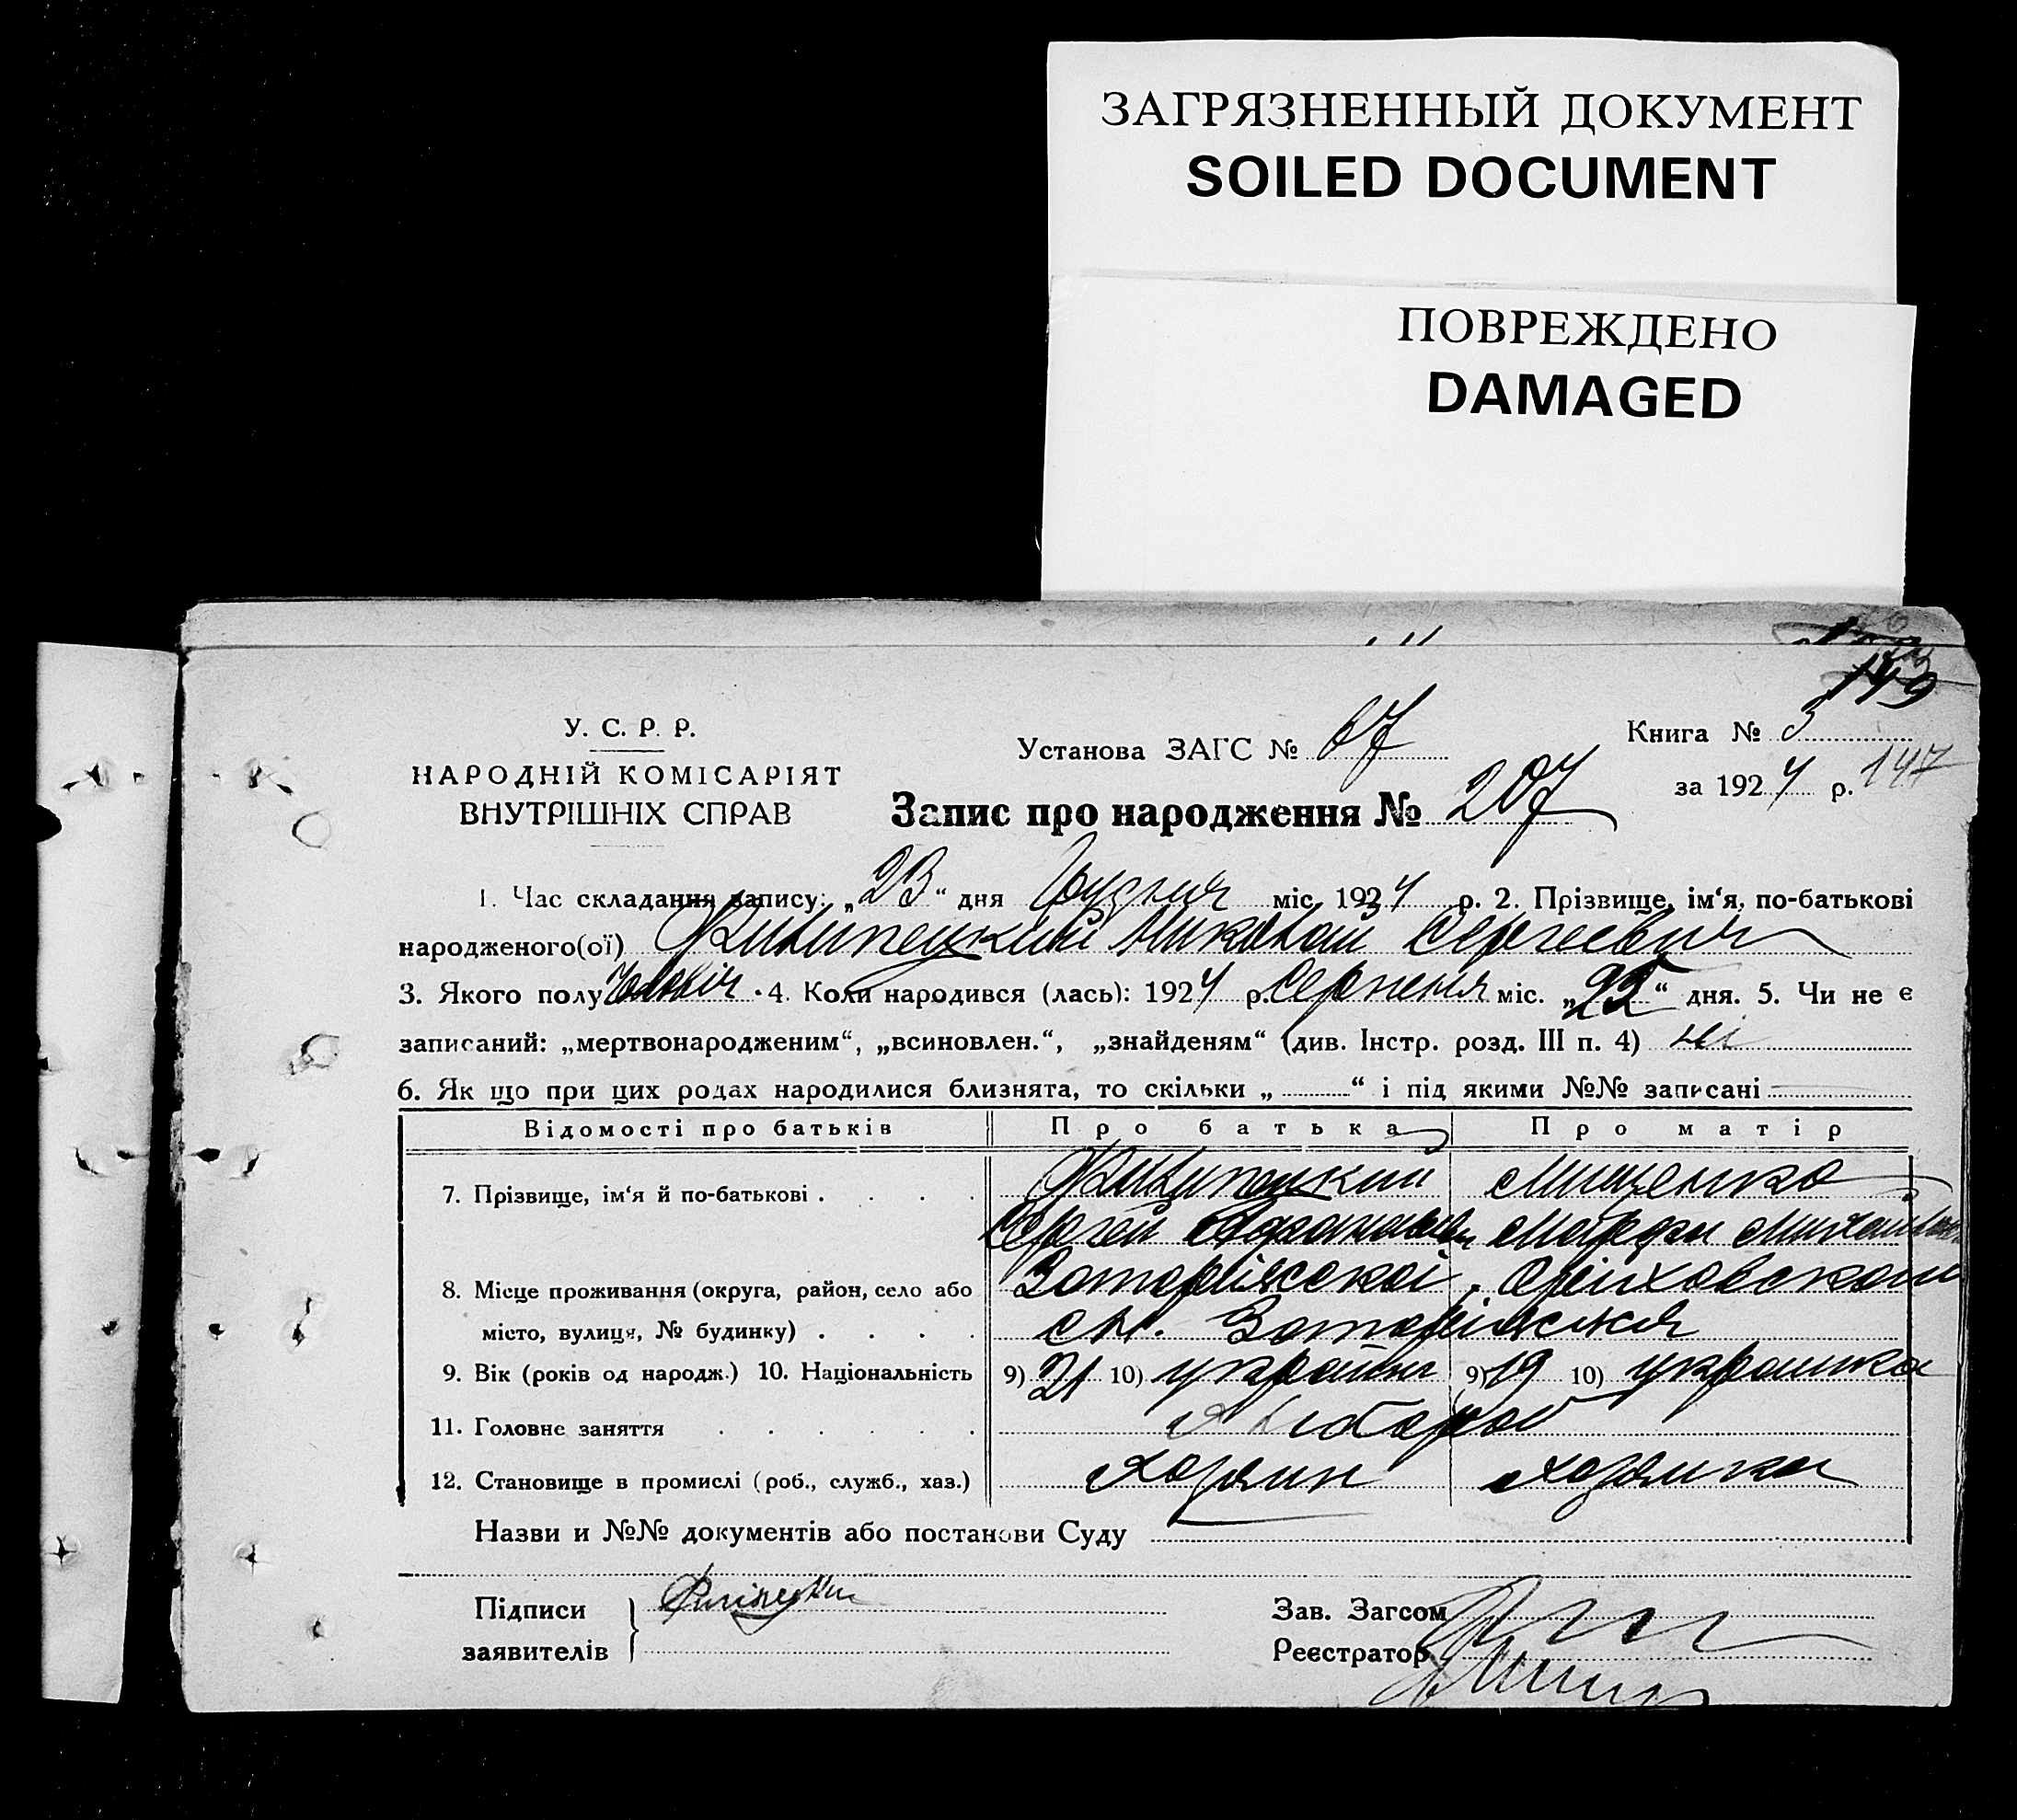 ЗАГРЯЗНЕННЫЙ ДОКУМЕНТ
SOILED DOCUMENT
ПОВРЕЖДЕНО
DAMAGED
149
У. С. Р. Р.
НАРОДНІЙ КОМІСАРІЯТ
ВНУТРІШНІХ СПРАВ
Установа ЗАГС № 67
Книга № 3
за 1924 р. 147
Запис про народження № 207
1. Час складання запису: „23“ дня Грудня міс. 1924 р. 2. Прізвище, ім‘я, по-батькові
народженого(ої) Филипецкий Николай Сергеевич
3. Якого полу Чоловіч. 4. Коли народився (лась): 1924 р. Серпеня міс. „25“ дня. 5. Чи не є
записаний: „мертвонародженим“, „всиновлен.“, „знайденям“ (див. Інстр. розд. III п. 4) ні
6. Як що при цих родах народилися близнята, то скільки „ “ і під якими №№ записані
Відомості про батьків Про батька Про матір
7. Прізвище, ім‘я й по-батькові . . . . Филипецкий Мищенко
Сергей Марфа
8. Місце проживання (округа, район, село або Запоріжскоі, Оріховского
місто, вулиця, № будинку) . . . .
9. Вік (років од народж.) 10. Національність 9) 21 10) 9) 19 10) украинка
11. Головне заняття . . . . . . Хлібороб
12. Становище в промислі (роб., служб., хаз.) Хозяин Хозяйка
Назви и №№ документів або постанови Суду
Підписи Філіпецкий Зав. Загсом
заявителів Реєстратор